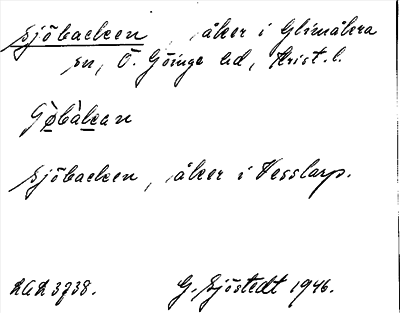 Sjöbacken, åker i Glimåkra
sn, Ö. Göinge hd, Krist. l.
Sjöbacken, åker i Vesslarp.
G. Sjöstedt 1946.